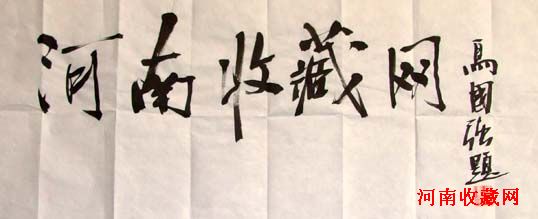 河南收藏网
馬國强題
河南收藏网